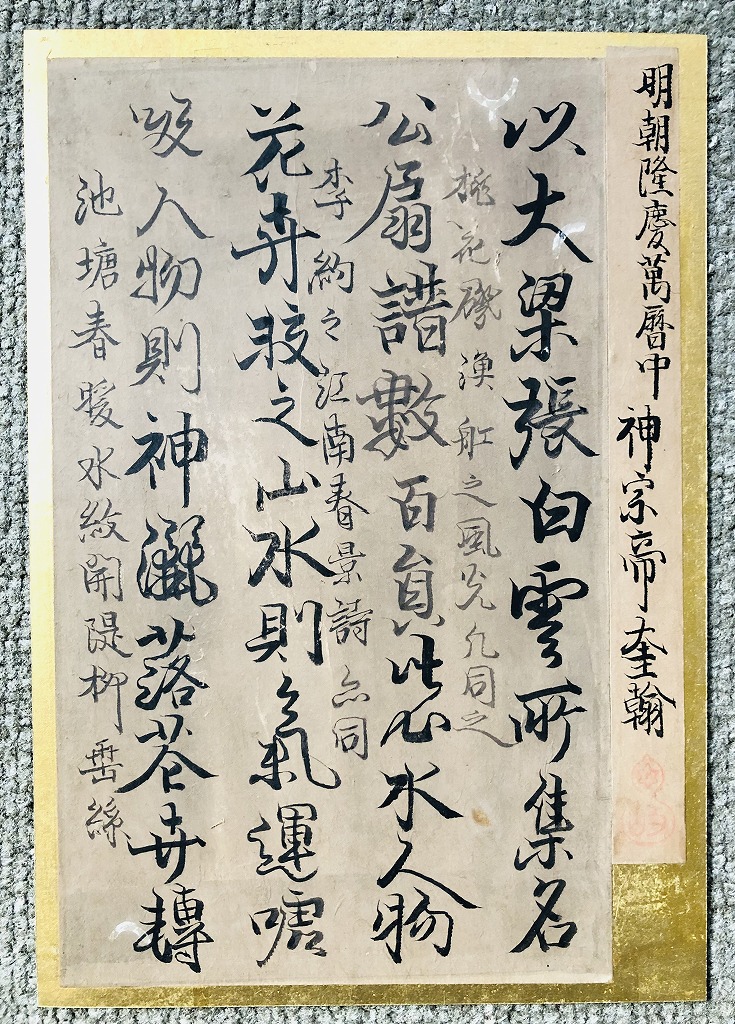 明朝隆慶萬曆中神宗帝奎翰
以大梁張白雲所集名
桃花磯漁舡之風光凡同之
公扇譜數百員水人物
李約之江南春景詩亦同
花卉之山水則氣運噓
吸人物則神瀟落花卉轉
池塘春暖水紋開隄柳垂絲